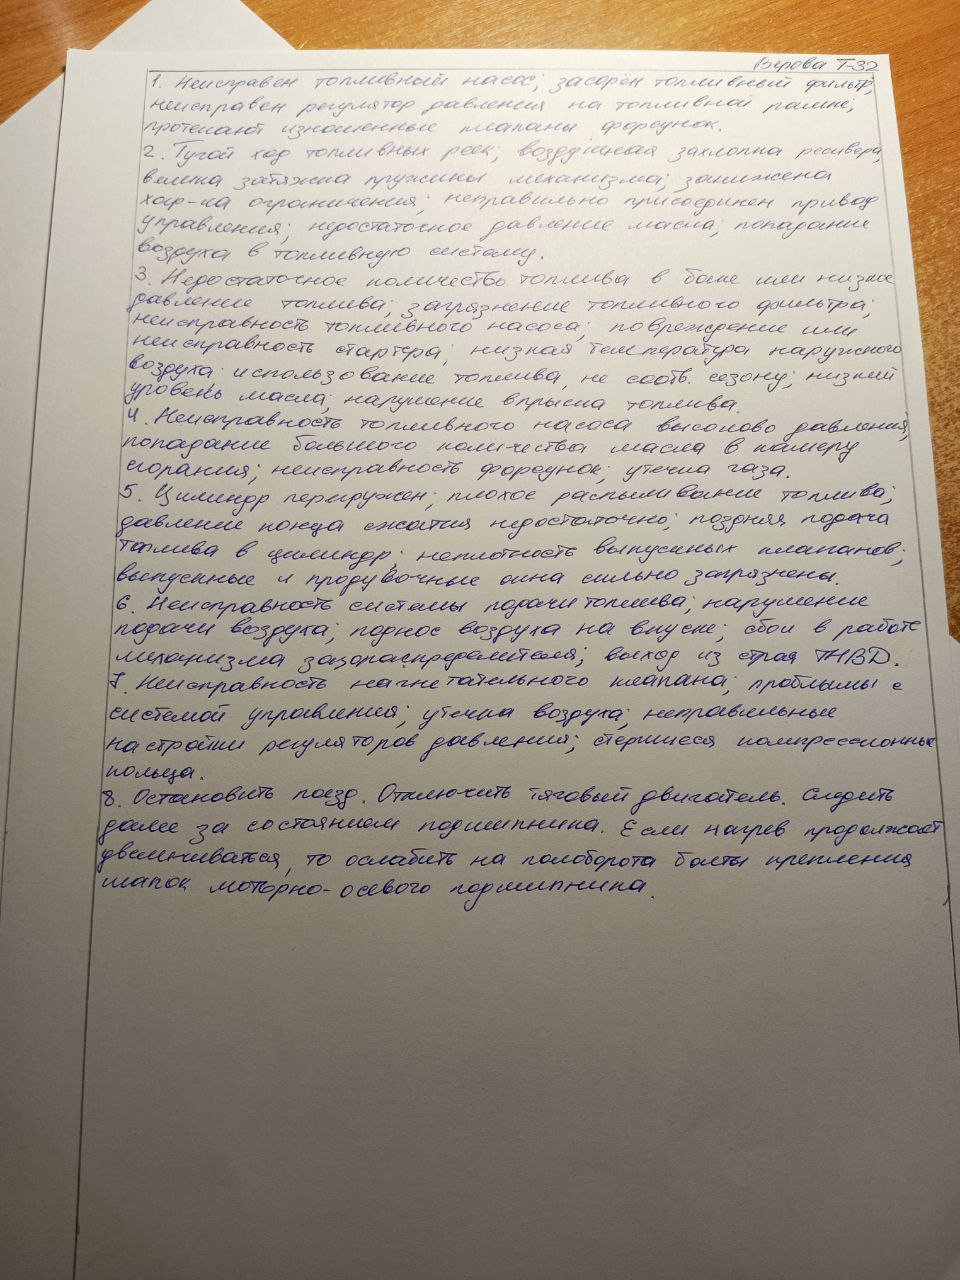 Верова Т-32
1. Неисправен топливный насос; засорён топливный фильтр,
неисправен регулятор давления на топливной рампе;
протекают изношенные клапаны форсунок.
2. Тугой ход топливных реек; воздушная захлопка ресивера,
велика затяжка пружины механизма; занижена
хар-ка ограничения; неправильно присоединен привод
управления; недостаточное давление масла; попадание
воздуха в топливную систему.
3. Недостаточное количество топлива в баке или низкое
давление топлива; загрязнение топливного фильтра;
неисправность топливного насоса; повреждение или
неисправность стартера; низкая температура наружного
воздуха; использование топлива, не соотв. сезону; низкий
уровень масла; нарушение впрыска топлива.
4. Неисправность топливного насоса высоково давления,
попадание большого количества масла в камеру
сгорания; неисправность форсунок; утечка газа.
5. Цилиндр перегружен; плохое распыливание топлива;
давление конца сжатия недостаточно; поздняя подача
топлива в цилиндр; неплотность выпускных клапанов;
выпускные и продувочные окна сильно загрязнены.
6. Неисправность системы подачи топлива; нарушение
подачи воздуха; подсос воздуха на впуске; сбои в работе
механизма газораспределителя; выход из строя ТНВД.
7. Неисправность нагнетательного клапана; проблымы с
системой управления; утечка воздуха; неправильные
настройки регуляторов давления; стершиеся компрессионные
кольца.
8. Остановить поезд. Отключить тяговый двигатель. Следить
далее за состоянием подшипника. Если нагрев продолжает
увеличиваться, то ослабить на полоборота болты крепления
шапок моторно-осевого подшипника.